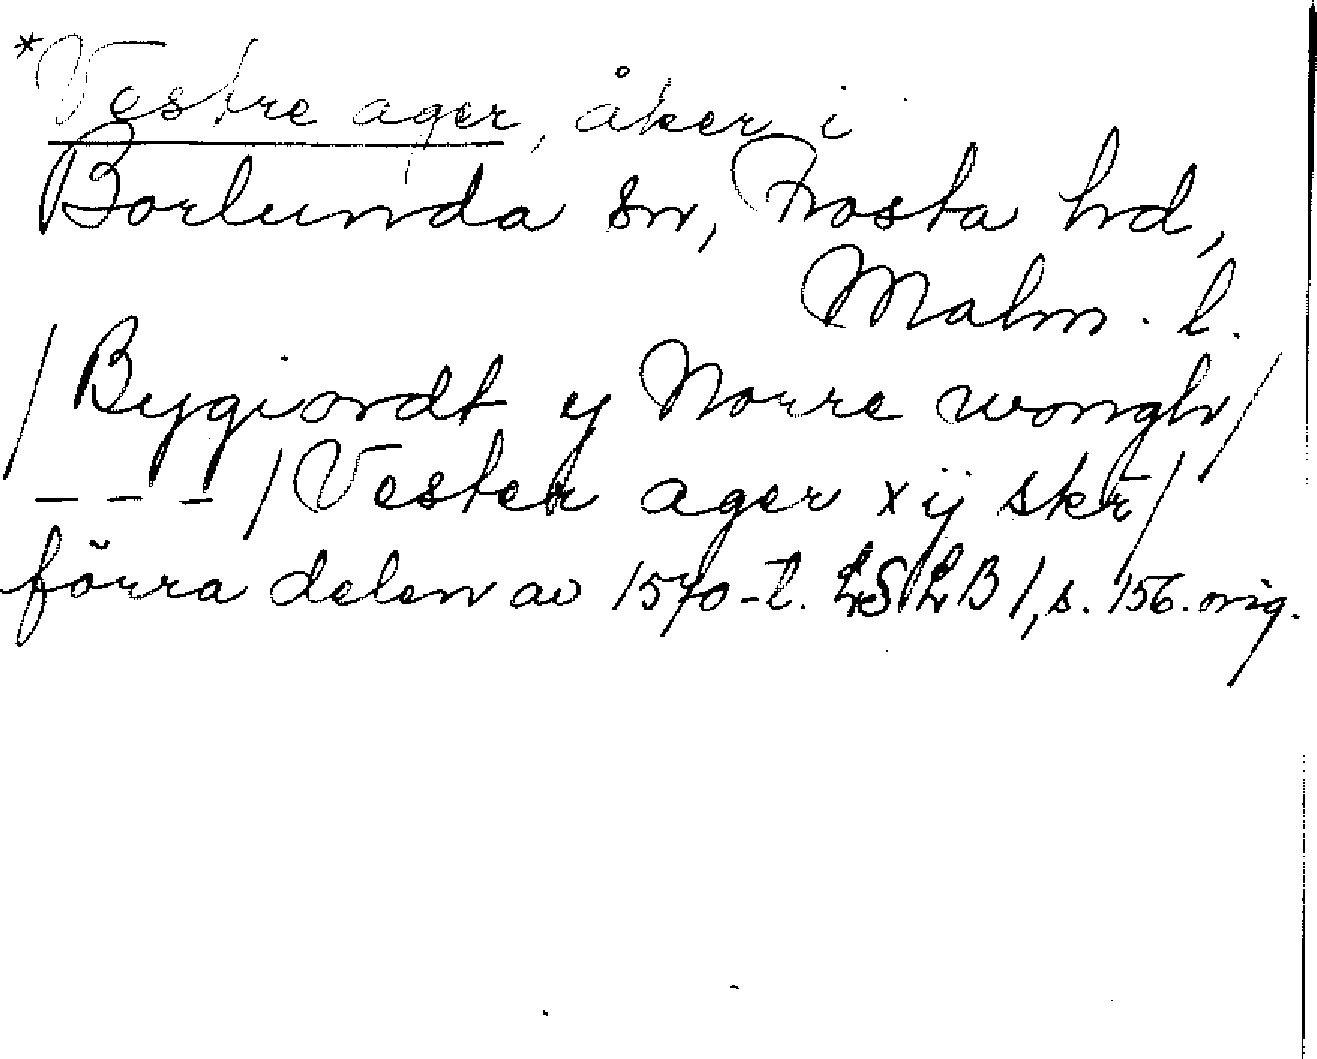 *Vestre ager, åker i
Borlunda sn, Frosta hd,
Malm. l.
/Bygiordt y Norre wongh/
--- /Vester ager xij skr̄/
förra delen av 1570-t. LSLB 1, s. 156. orig.